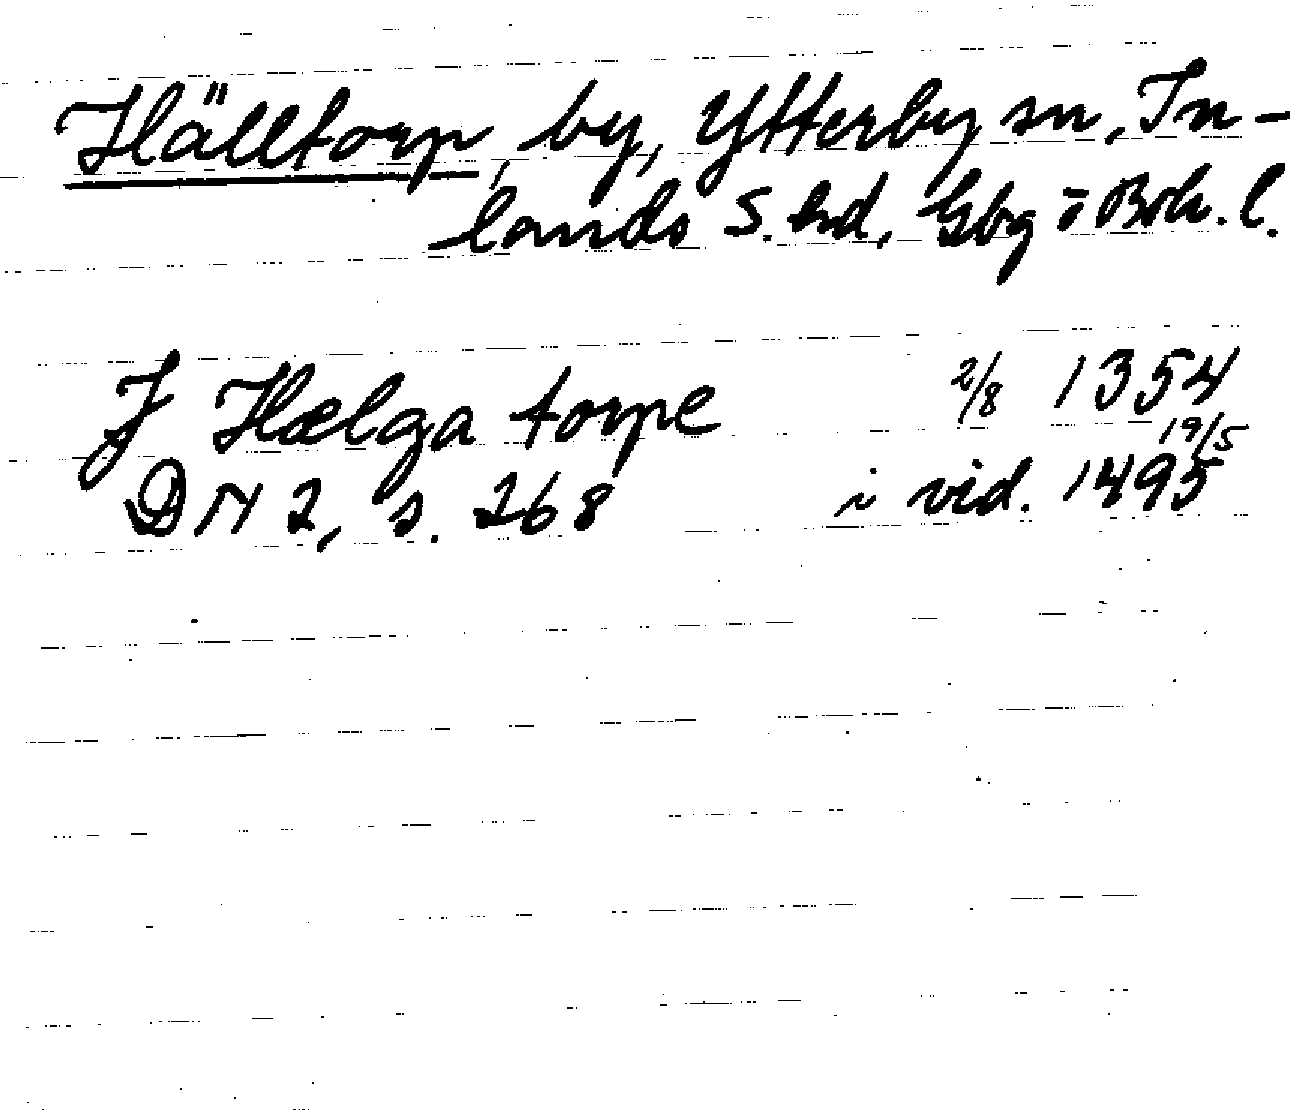 Hälltorp, by, Ytterby sn, In-
lands S. hd, Gbg o Boh. l.
J Hælga torpe 2/8 1354
DN 2, s. 268 i vid. 19/5 1495